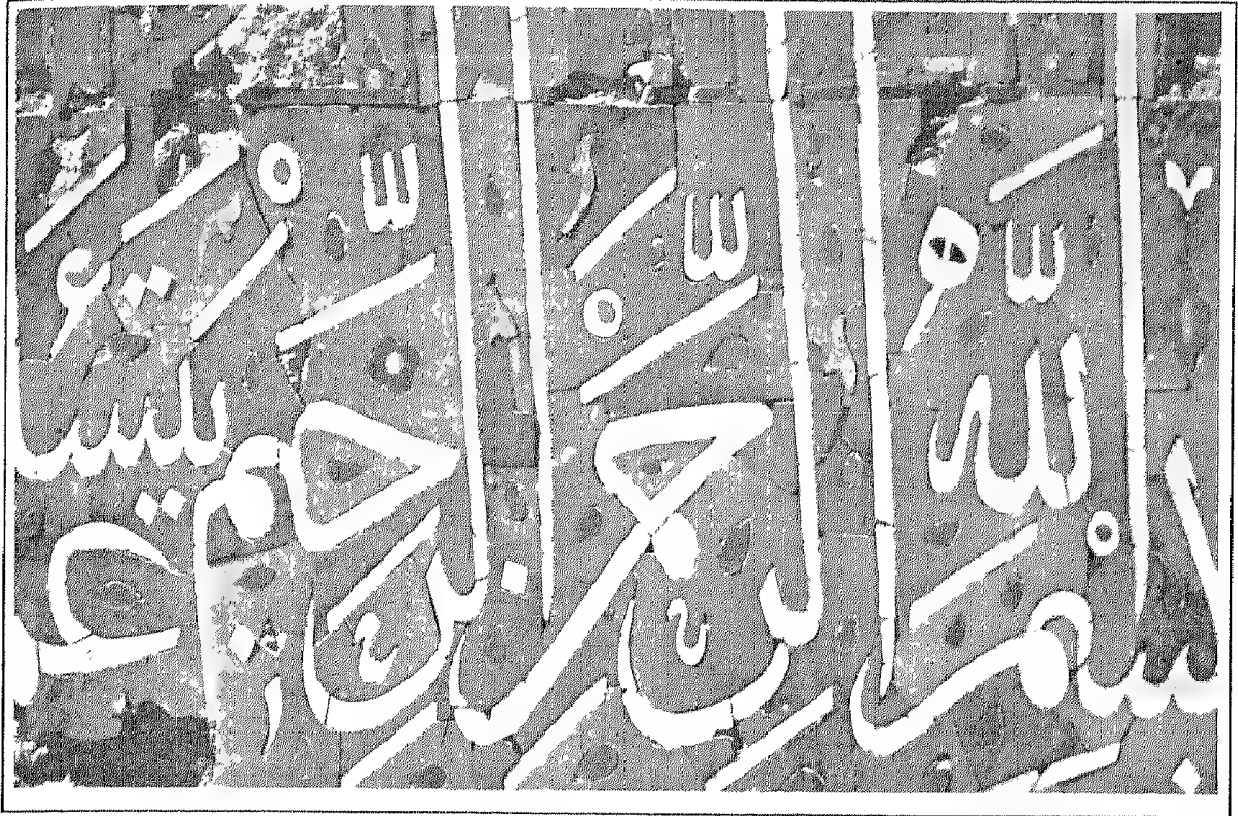 بِسْمِ اللَّهِ الرَّحْمَنِ الرَّحِيمِ عَمَّ يَتَسَاءَ